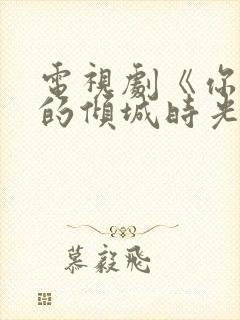 電視劇《你
的傾城時光
慕毅飛